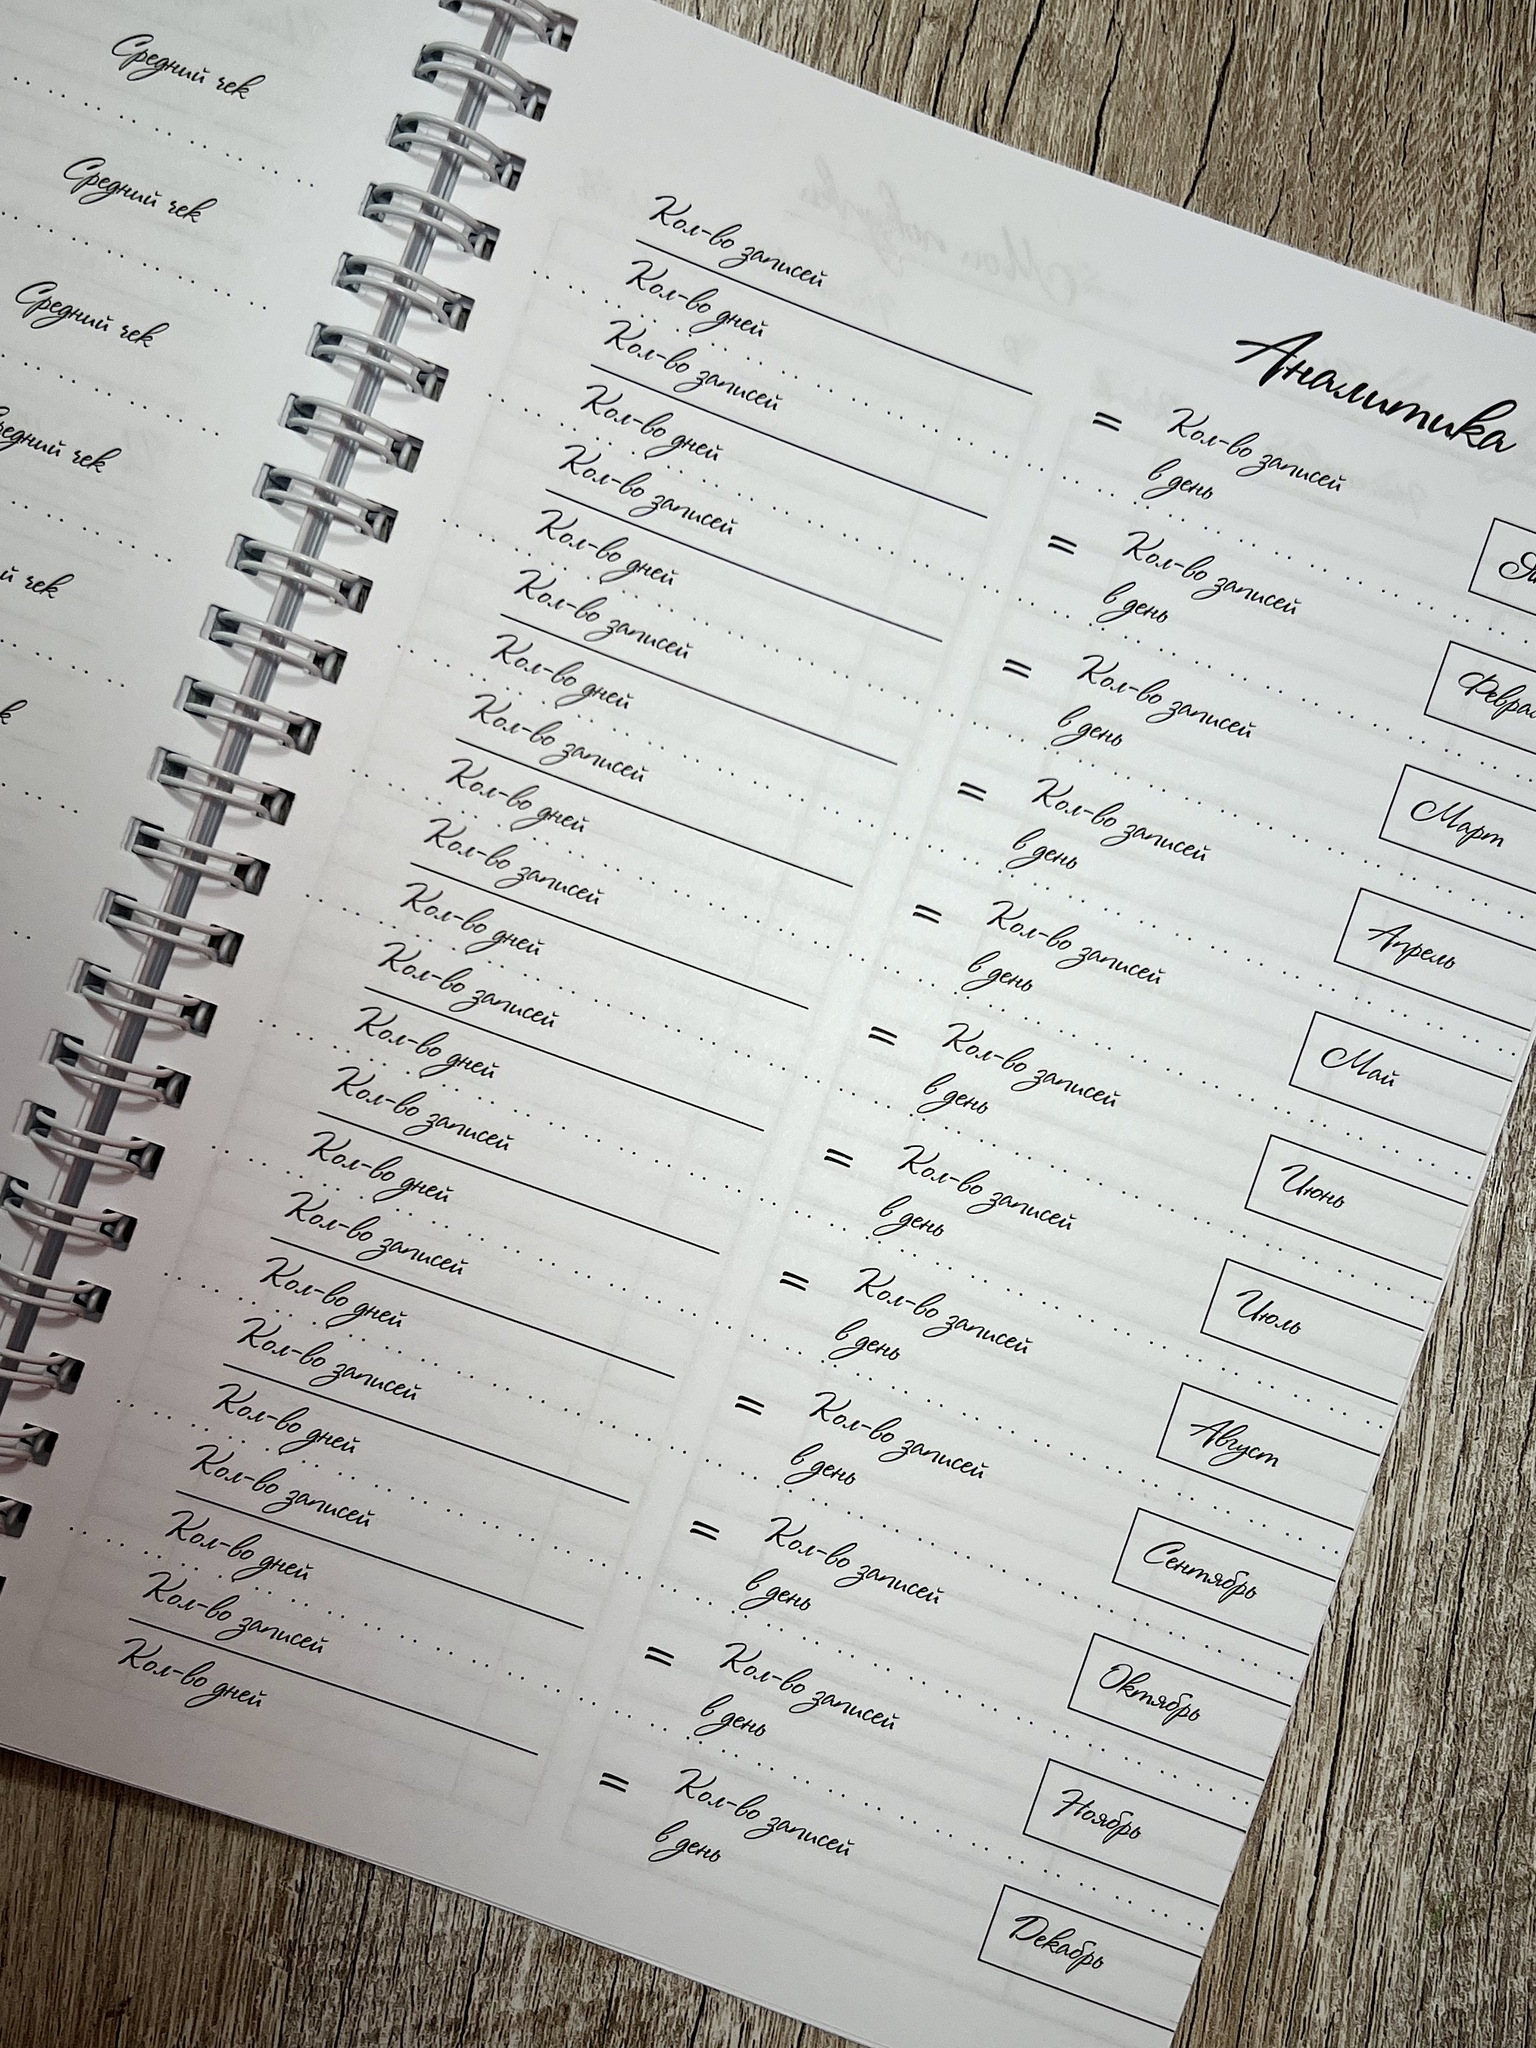 Средний чек
Средний чек
Средний чек
редний чек
й чек
к
Аналитика
Кол-во записей
Кол-во дней
= Кол-во записей
в день
Кол-во записей
Кол-во дней
= Кол-во записей
в день
Феврал
Кол-во записей
Кол-во дней
= Кол-во записей
в день
Март
Кол-во записей
Кол-во дней
= Кол-во записей
в день
Апрель
Кол-во записей
Кол-во дней
= Кол-во записей
в день
Май
Кол-во записей
Кол-во дней
= Кол-во записей
в день
Июнь
Кол-во записей
Кол-во дней
= Кол-во записей
в день
Июль
Кол-во записей
Кол-во дней
= Кол-во записей
в день
Август
Кол-во записей
Кол-во дней
= Кол-во записей
в день
Сентябрь
Кол-во записей
Кол-во дней
= Кол-во записей
в день
Октябрь
Кол-во записей
Кол-во дней
= Кол-во записей
в день
Ноябрь
Кол-во записей
Кол-во дней
= Кол-во записей
в день
Декабрь